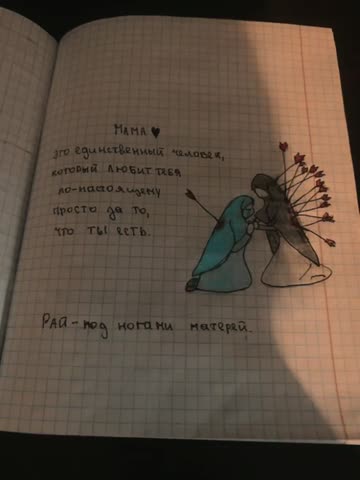 Мама ♥
это единственный человек,
который любит тебя
по-настоящему
просто за то,
что ты есть.
Рай-под ногами матерей.